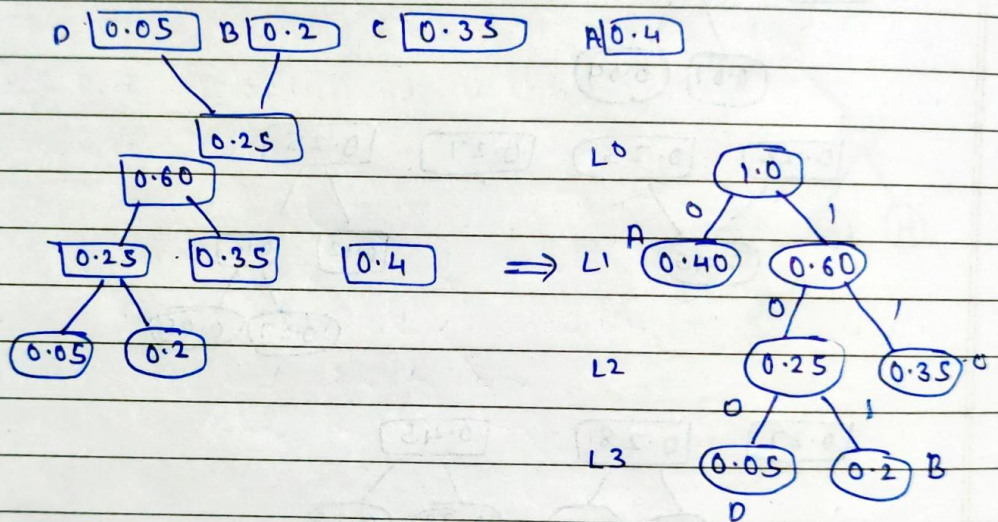 D 0.05 B 0.2 C 0.35 A 0.4
0.25
0.60
0.25 0.35 0.4
0.05 0.2
⇒
L0 1.0
0 1
L1 A 0.40 0.60
0 1
L2 0.25 0.35
0 1
L3 0.05 0.2 B
D